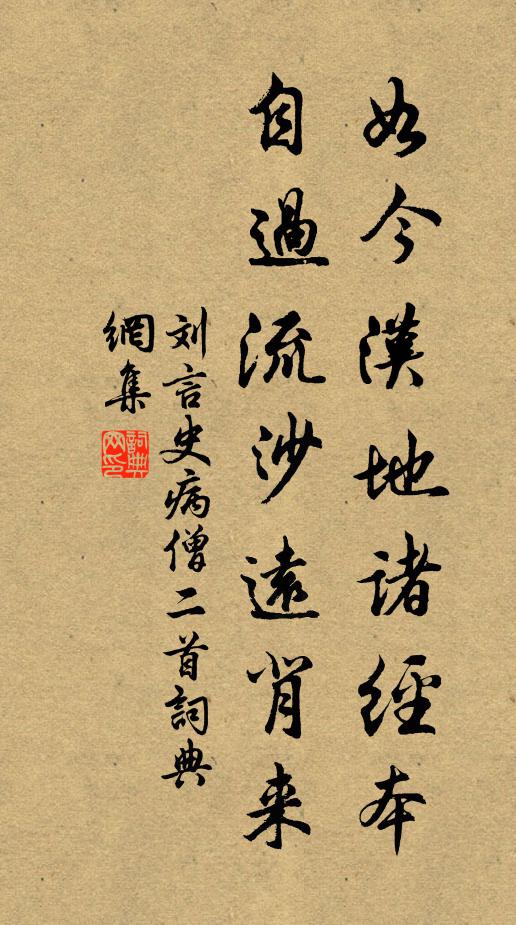 如今漢地諸經本
自過流沙遠背来
刘言史病僧二首詞典
網集
詞典網印